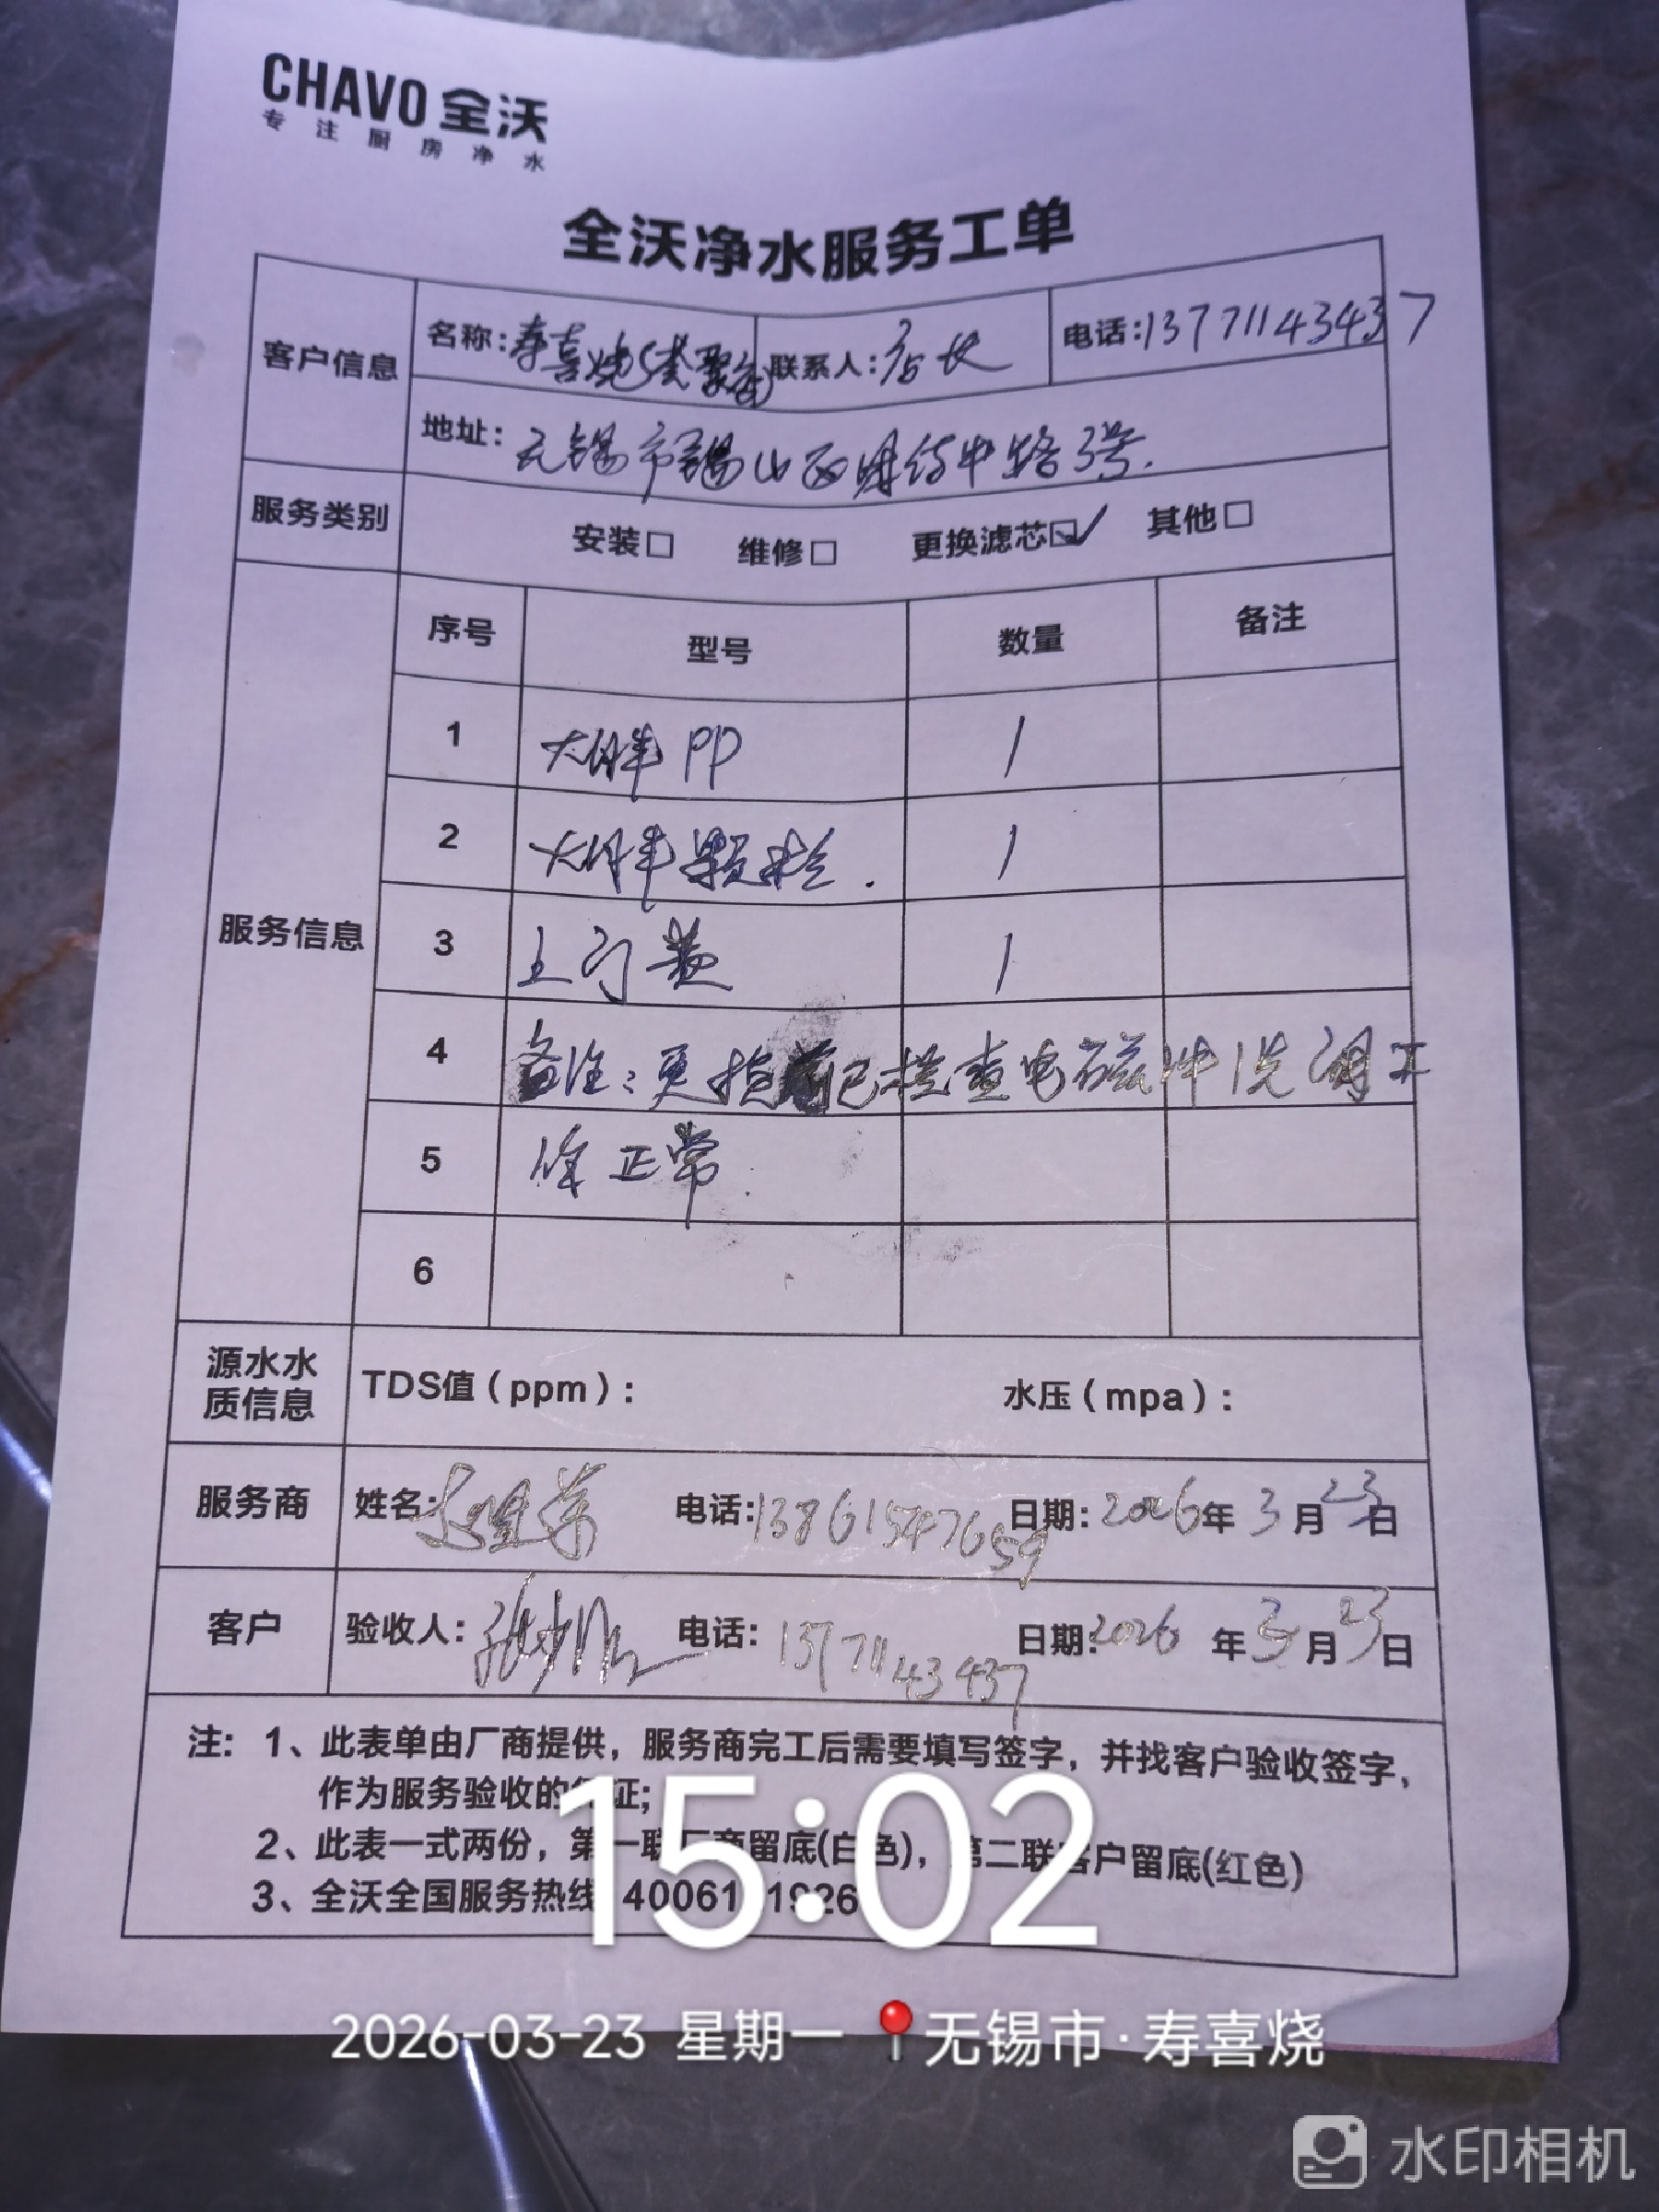 CHAVO 全沃
专注厨房净水
全沃净水服务工单
客户信息
名称:寿喜烧 联系人:店长 电话:13771143437
地址:无锡市锡山区 中路3号.
服务类别 安装□ 维修□ 更换滤芯☑ 其他□
服务信息
序号 型号 数量 备注
1 大胖 PP 1
2 大胖 颗粒. 1
3 1
4 备注:更换前已检查电磁冲洗阀工
5 作正常.
6
源水水质信息 TDS值(ppm): 水压(mpa):
服务商 姓名: 电话:13861547659 日期:2026年3月23日
客户 验收人: 电话:13771143437 日期:2026年3月23日
注:1、此表单由厂商提供,服务商完工后需要填写签字,并找客户验收签字,
作为服务验收的 证;
2、此表一式两份,第一联厂商留底(白色),第二联客户留底(红色)
3、全沃全国服务热线 40061 1926
15:02
2026-03-23 星期一 无锡市·寿喜烧
水印相机